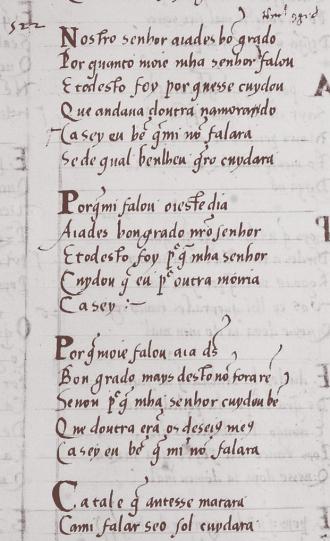 522
Nostro senhor aiades bõ grado
Por quanto moie mha senhor falou
E todesto foy por quesse cuydou
Que andaua doutra namorando
Ca sey eu bẽ q̃ mi nõ falara
Se de qual ben lheu q̃ro cuydara
Porq̃ mi falou oieste dia
Aiades bon grado nr̃o senhor
E todesto foy pº q̃ mha senhor
Cuydou q̃ eu pº outra moiria
Ca sey :~
Porq̃ moie falou aia ds̃
Bon grado mays desto nõ forare
Senon pº q̃ mha senhor cuydou bẽ
Que doutra erã os deseios meꝯ
Ca sey eu bẽ q̃ mi nõ falara
Ca tal e q̃ antesse matara
Ca mi falar seo sol cuydara